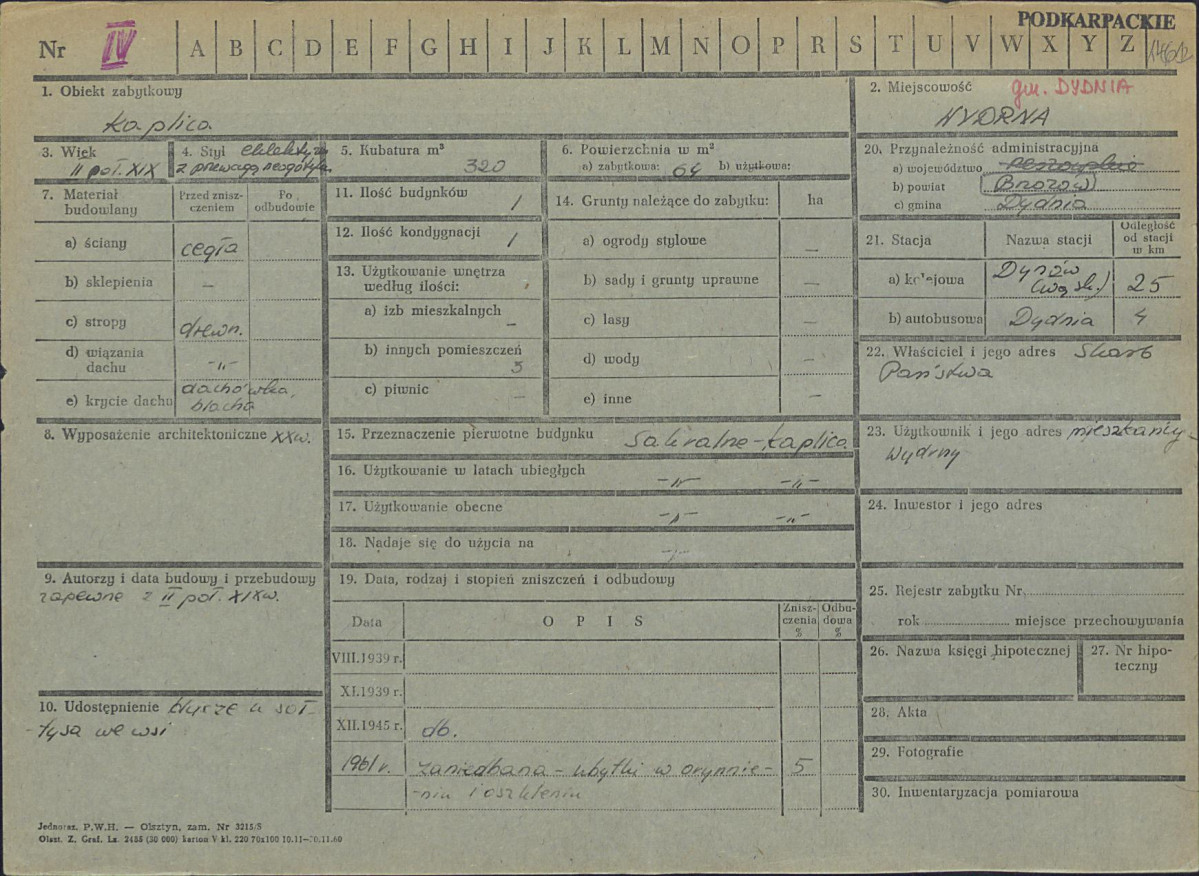 PODKARPACKIE
Nr IV A B C D E F G H I J K L M N O P R S T U V W X Y Z
1. Obiekt zabytkowy
kaplica
2. Miejscowość gm. DYDNIA
WYDRNA
3. Wiek
II poł. XIX
4. Styl eklektyzm
z przewagą neogotyku
5. Kubatura m³
320
6. Powierzchnia w m²
a) zabytkowa: 64 b) użytkowa:
7. Materiał budowlany
Przed zniszczeniem
Po odbudowie
a) ściany cegła
b) sklepienia —
c) stropy drewn.
d) wiązania dachu -„-
e) krycie dachu dachówka, blacha
8. Wyposażenie architektoniczne XXw.
9. Autorzy i data budowy i przebudowy
zapewne z II poł. XIXw.
10. Udostępnienie klucze u soł-
tysa we wsi
11. Ilość budynków 1
12. Ilość kondygnacji 1
13. Użytkowanie wnętrza
według ilości:
a) izb mieszkalnych —
b) innych pomieszczeń 3
c) piwnic —
14. Grunty należące do zabytku: ha
a) ogrody stylowe —
b) sady i grunty uprawne —
c) lasy —
d) wody —
e) inne —
15. Przeznaczenie pierwotne budynku Sakralne-kaplica
16. Użytkowanie w latach ubiegłych -„- -„-
17. Użytkowanie obecne -„- -„-
18. Nadaje się do użycia na -„-
19. Data, rodzaj i stopień zniszczeń i odbudowy
Data OPIS Zniszczenia % Odbudowa %
VIII.1939 r.
XI.1939 r.
XII.1945 r. db.
1961 r. zaniedbana - ubytki w orynnie- 5
-niu i oszkleniu
20. Przynależność administracyjna
a) województwo rzeszowskie
b) powiat (Brzozów)
c) gmina Dydnia
21. Stacja Nazwa stacji Odległość od stacji w km
a) kolejowa Dynów (wąsk.) 25
b) autobusowa Dydnia 4
22. Właściciel i jego adres Skarb
Państwa
23. Użytkownik i jego adres mieszkańcy
Wydrny
24. Inwestor i jego adres
25. Rejestr zabytku Nr
rok miejsce przechowywania
26. Nazwa księgi hipotecznej
27. Nr hipoteczny
28. Akta
29. Fotografie
30. Inwentaryzacja pomiarowa
Jednoraz. P.W.H. — Olsztyn, zam. Nr 3215/S
Olszt. Z. Graf. Lz. 2455 (30 000) karton V kl. 220 70x100 10.11—30.11.60